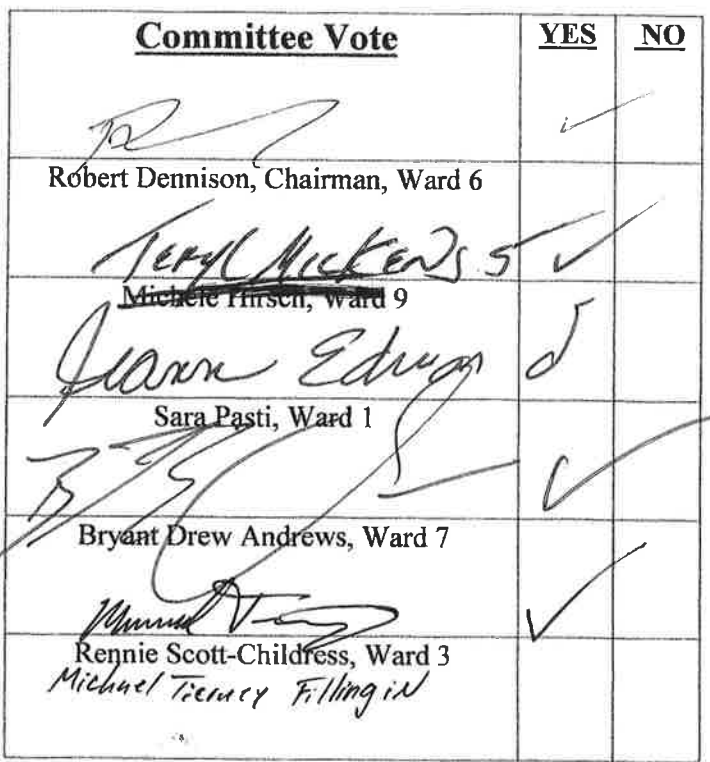 Committee Vote YES NO
Robert Dennison, Chairman, Ward 6
Teryl Mickens 5
Michele Hirsch, Ward 9
Jeann Edwards
Sara Pasti, Ward 1
Bryant Drew Andrews, Ward 7
Rennie Scott-Childress, Ward 3
Michael Tierney Filling in